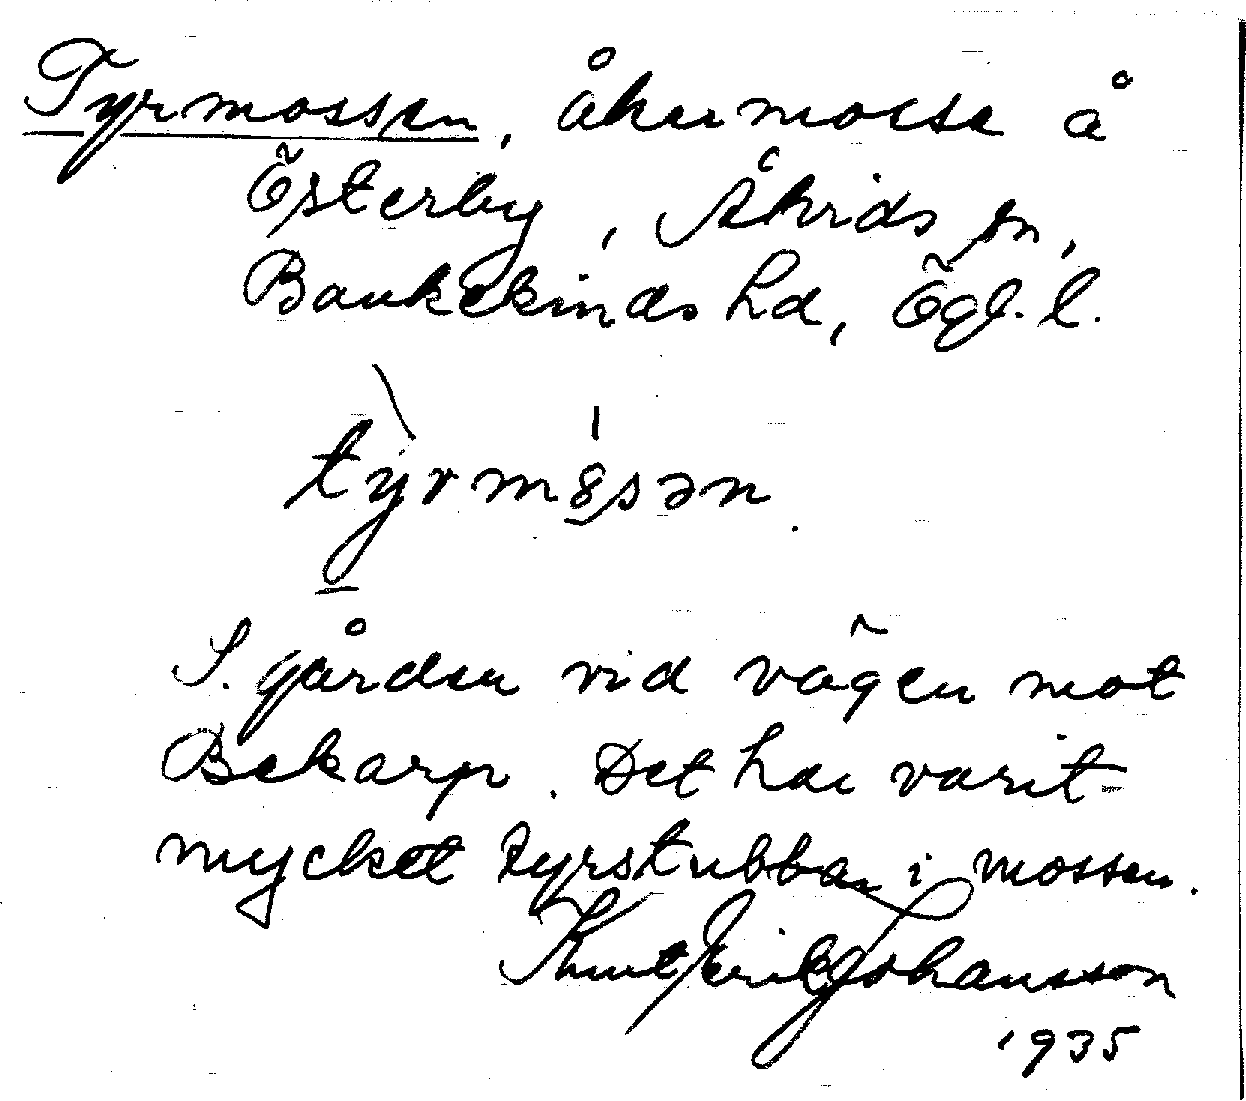 Tyrmossen, åkermosse å
Österby, Åtvids sn,
Bankekinds hd, Ögl. l.
tyrmo̱sən.
S. gården vid vägen mot
Bekarp. Det har varit
mycket tyrstubbar i mossen.
Knut Erik Johansson
1935